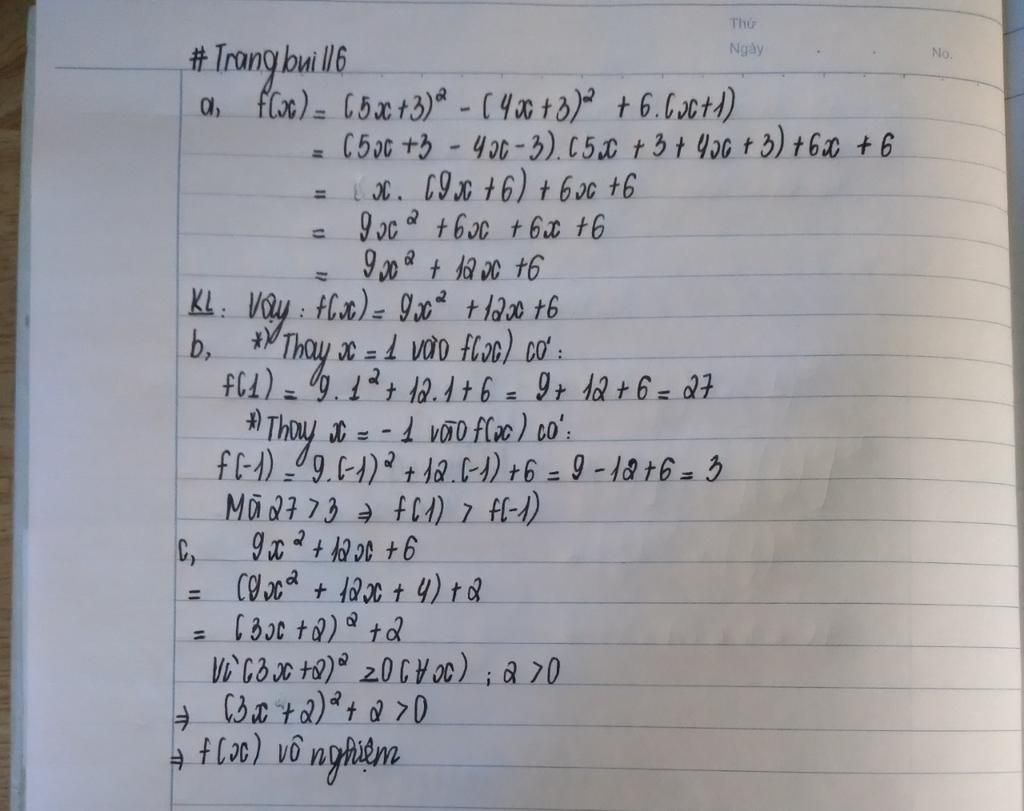 Thứ
Ngày . . No.
# Trangbui116
a, f(x) = (5x+3)² - (4x+3)² + 6.(x+1)
= (5x+3 - 4x-3).(5x + 3 + 4x + 3) + 6x + 6
= x. (9x + 6) + 6x + 6
= 9x² + 6x + 6x + 6
= 9x² + 12x + 6
KL: Vậy: f(x) = 9x² + 12x + 6
b, *) Thay x = 1 vào f(x) có:
f(1) = 9.1² + 12.1 + 6 = 9 + 12 + 6 = 27
*) Thay x = -1 vào f(x) có:
f(-1) = 9.(-1)² + 12.(-1) + 6 = 9 - 12 + 6 = 3
Mà 27 > 3 ⇒ f(1) > f(-1)
c, 9x² + 12x + 6
= (9x² + 12x + 4) + 2
= (3x + 2)² + 2
Vì (3x + 2)² ≥ 0 (∀x) ; 2 > 0
⇒ (3x + 2)² + 2 > 0
⇒ f(x) vô nghiệm